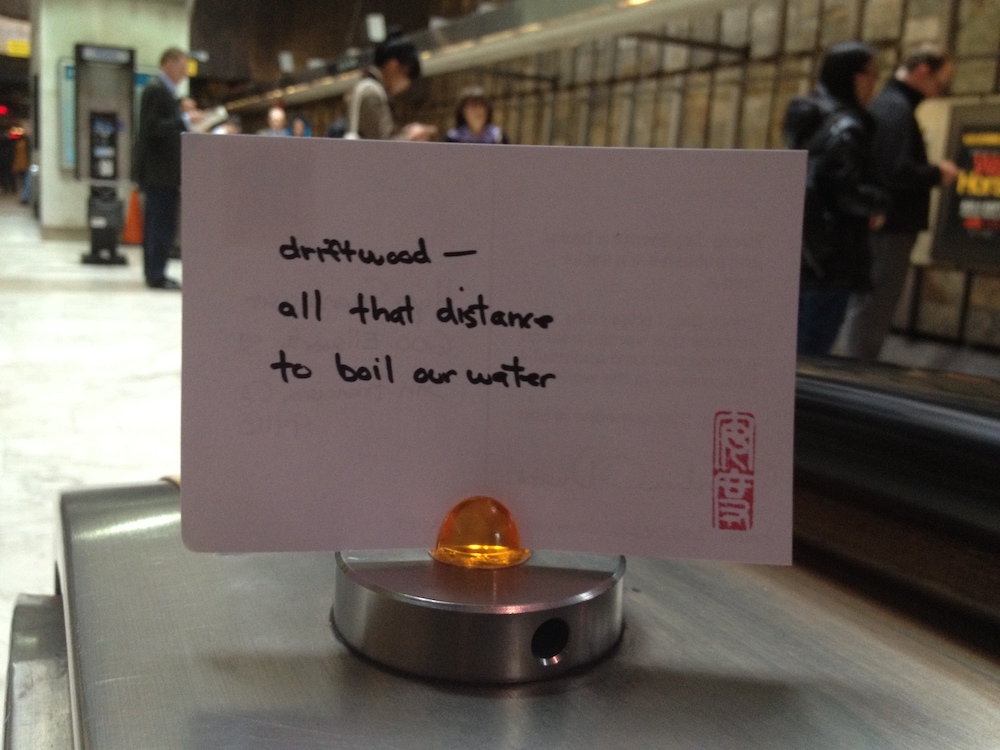 driftwood —
all that distance
to boil our water